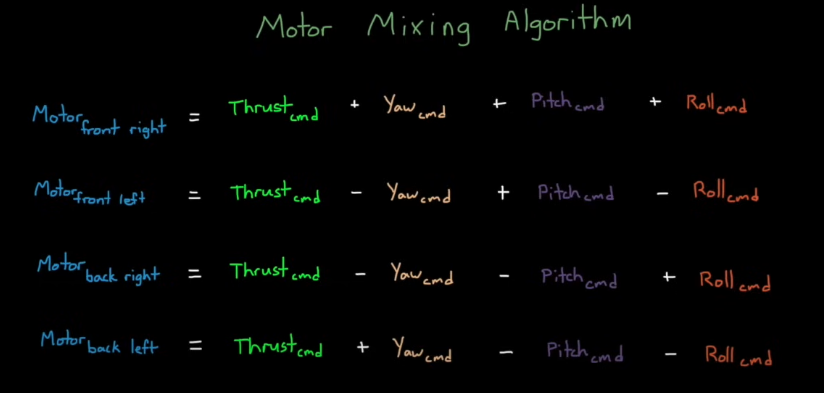 Motor Mixing Algorithm
Motor front right = Thrust cmd + Yaw cmd + Pitch cmd + Roll cmd
Motor front left = Thrust cmd - Yaw cmd + Pitch cmd - Roll cmd
Motor back right = Thrust cmd - Yaw cmd - Pitch cmd + Roll cmd
Motor back left = Thrust cmd + Yaw cmd - Pitch cmd - Roll cmd